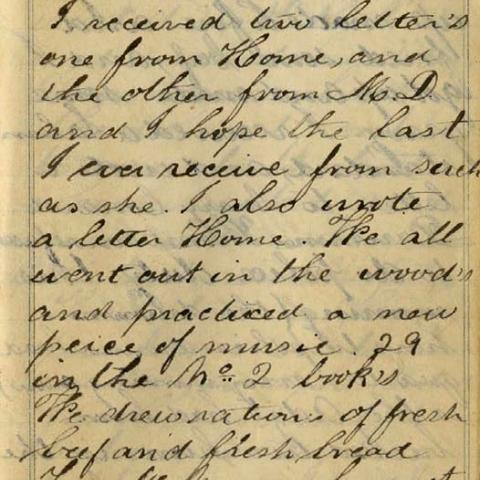 I received two letter's
one from Home, and
the other from M. D.
and I hope the last
I ever receive from such
as she. I also wrote
a letter Home. We all
went out in the wood's
and practiced a new
peice of music. 29
in the No. 2 book's
We drew rations of fresh
beef and fresh bread